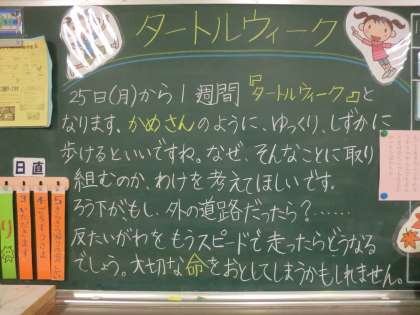 タートルウィーク
25日(月)から1週間『タートルウィーク』と
なります。かめさんのように、ゆっくり、しずかに
歩けるといいですね。なぜ、そんなことに取り
組むのか、わけを考えてほしいです。
ろう下がもし、外の道路だったら?……
反たいがわをもうスピードで走ったらどうなる
でしょう。大切な命をおとしてしまうかもしれません。
日直